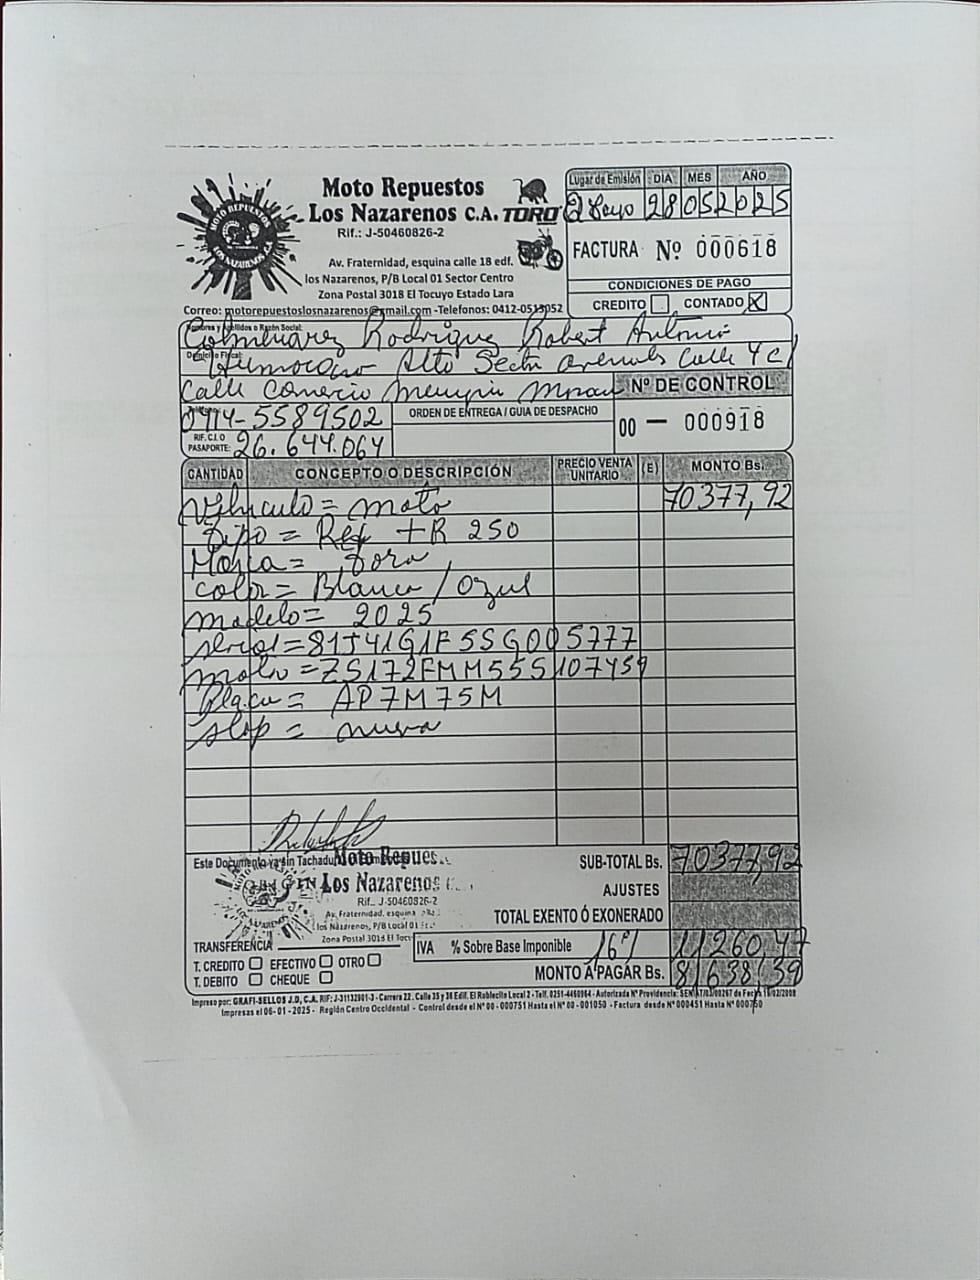 MOTO REPUESTOS
LOS NAZARENOS C.A.
Moto Repuestos
Los Nazarenos C.A. TORO
Rif.: J-50460826-2
Av. Fraternidad, esquina calle 18 edf.
los Nazarenos, P/B Local 01 Sector Centro
Zona Postal 3018 El Tocuyo Estado Lara
Correo: motorepuestoslosnazarenos@gmail.com -Telefonos: 0412-0513052
Lugar de Emisión DIA MES AÑO
28 05 2025
FACTURA Nº 000618
CONDICIONES DE PAGO
CREDITO CONTADO X
Nombres y Apellidos o Razón Social:
Colmenarez Rodriguez Robert Antonio
Domicilio Fiscal:
Humocaro Alto Sector Calle 4 c/
Calle Comercio Moran
Nº DE CONTROL
0414-5589502
ORDEN DE ENTREGA / GUIA DE DESPACHO
00 — 000918
RIF. C.I. O
PASAPORTE: 26.644.064
CANTIDAD CONCEPTO O DESCRIPCIÓN PRECIO VENTA UNITARIO (E) MONTO Bs.
Vehiculo = moto 70377,92
Tipo = +R 250
Marca = Toro
color = Blanco / Azul
modelo = 2025
serial = 81J41G1F5SG005777
motor = ZS172FMM55S107459
Placa = AP7M75M
= nueva
Este Documento va sin Tachadu
Moto Repues
Los Nazarenos
Rif.. J-50460826-2
Av. Fraternidad, esquina
los Nazarenos, P/B Local 01
Zona Postal 3018 El Tocu
SUB-TOTAL Bs. 70377,92
AJUSTES
TOTAL EXENTO Ó EXONERADO
TRANSFERENCIA
IVA % Sobre Base Imponible 16% 11260,47
T. CREDITO EFECTIVO OTRO
T. DEBITO CHEQUE
MONTO A PAGAR Bs. 81638,39
Impreso por: GRAFI-SELLOS J.D, C.A. RIF: J-31132901-3 - Carrera 22. Calle 35 y 36 Edif. El Roblecito Local 2 - Telf. 0251-4460964 - Autorizada Nº Providencia: SENIAT/03/00267 de Fecha 18/02/2008
Impresas el 06-01-2025- Región Centro Occidental - Control desde el Nº 00-000751 Hasta el Nº 00-001050 - Factura desde Nº 000451 Hasta Nº 000750